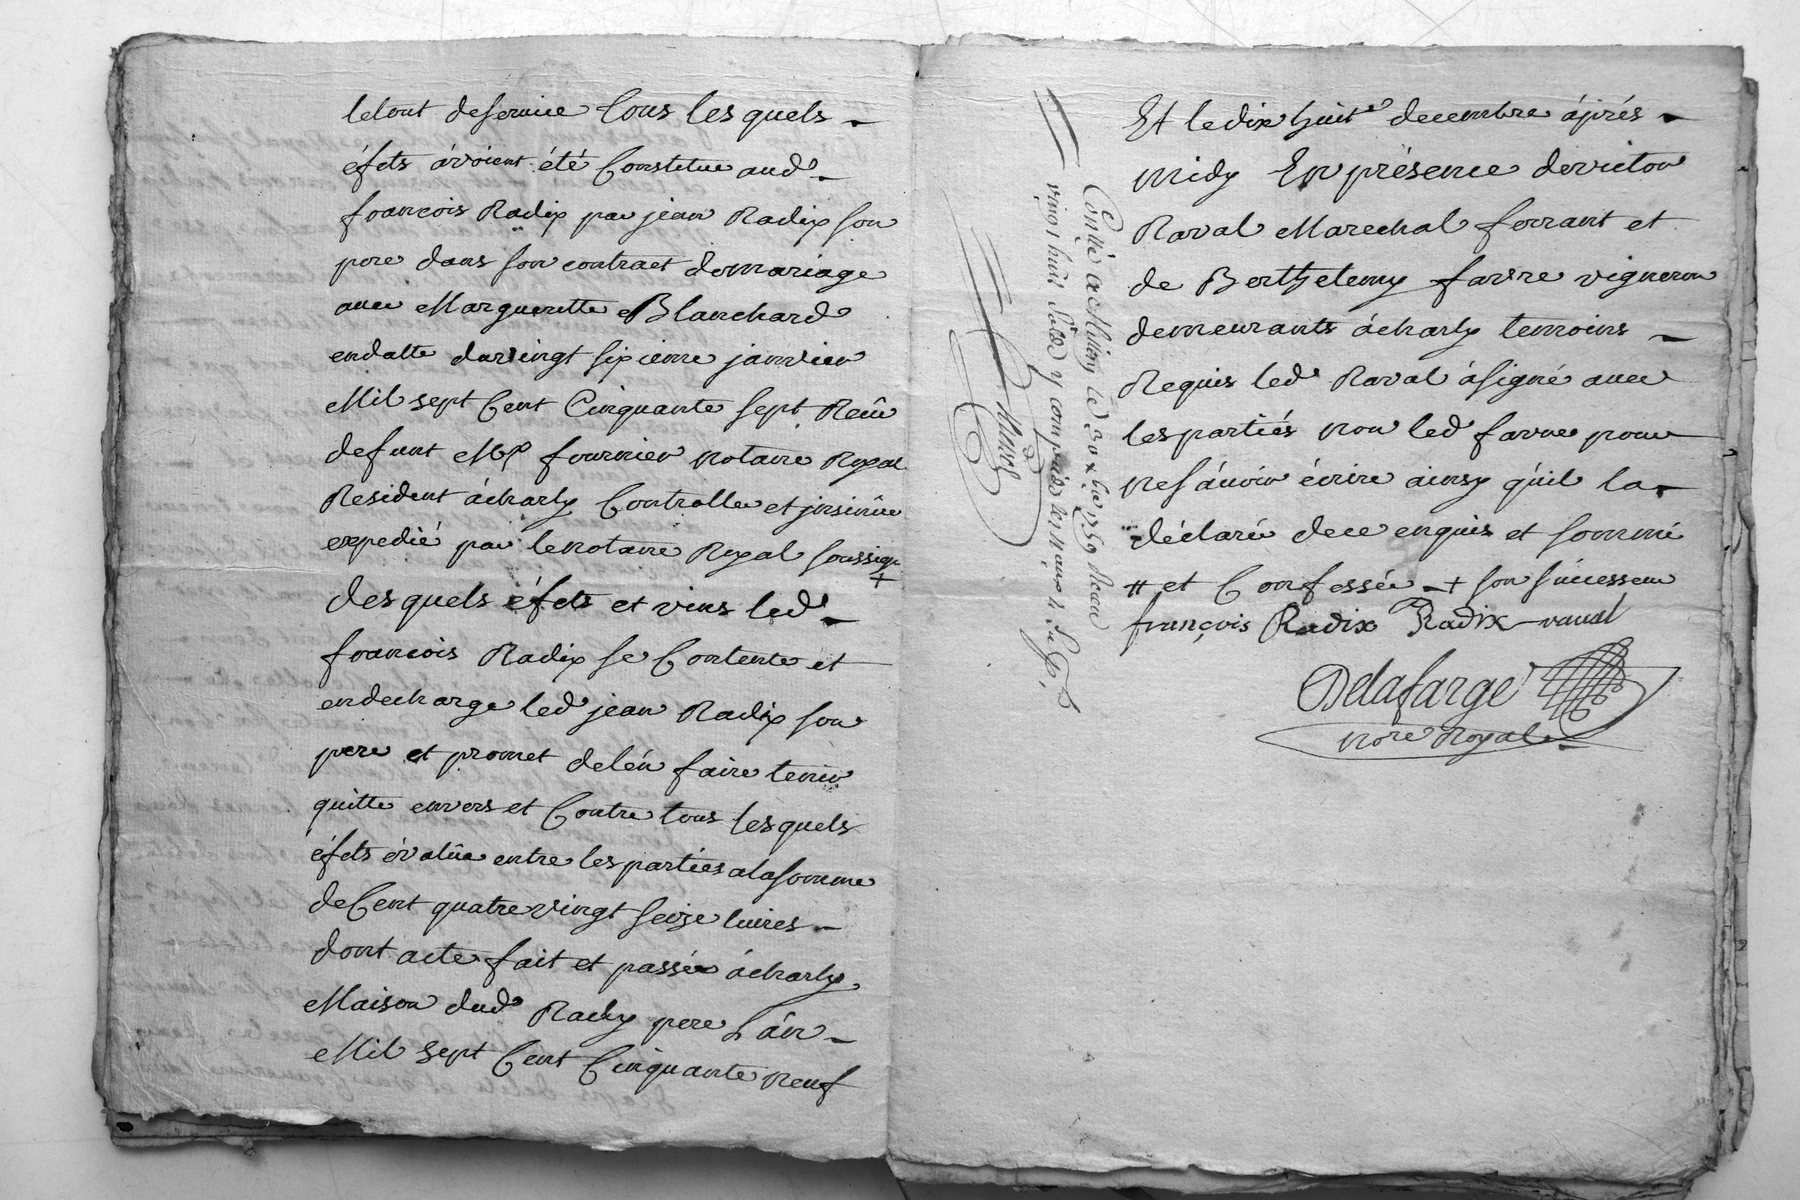 letout deservice tous les quels
éfets ávoient été Constitue aud.
francois Radix par jean Radix son
pere dans son contract demariage
avec Margueritte Blanchard
endatte duvingt sixieme janvier
Mil sept Cent Cinquante sept Recû
defunt Me fournier notaire Royal
Resident ácharly Controlle et jnsinûe
expedié par lenotaire Royal soussigne
+
desquels éfets et vins led.
francois Radix se Contente et
endecharge led jean Radix son
pere et promet delén faire tenir
quitte envers et Contre tous lesquels
éfets évalûe entre lesparties alasomme
deCent quatrevingt seize livres
dont acte fait et passée ácharly
Maison dud Radix pere Lán
Mil sept Cent Cinquante neuf
Et ledix huite decembre áprés
midy En présence devictor
Raval Marechal ferrant et
de Berthelemy favre vigneron
demeurants ácharly temoins
Requis led Raval ásigné avec
lespartiés non led favre pour
nesávoir écrire ainsy qúil la
déclaré dece enquis et sommé
# et Confessée + son súccesseur
françois Radix Radix raval
Delafarge
nore Royal
Conllé a Millery le 30 xbre 1759 Recu
vingt huit sols y compris les